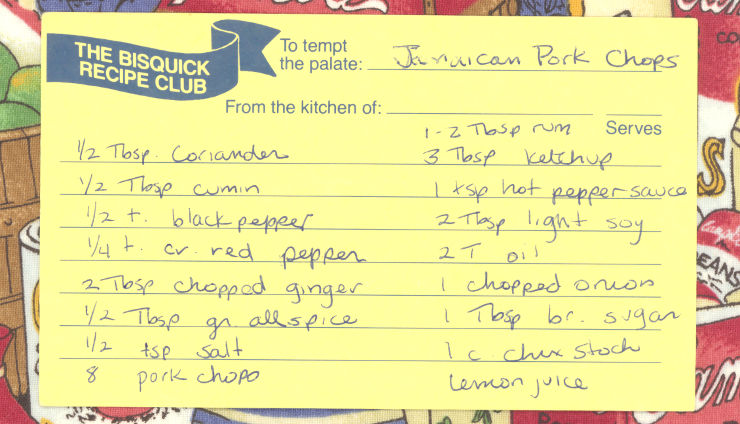 THE BISQUICK
RECIPE CLUB
To tempt
the palate: Jamaican Pork Chops
From the kitchen of:
Serves
1/2 Tbsp. Coriander
1/2 Tbsp cumin
1/2 t. black pepper
1/4 t. cr. red pepper
2 Tbsp chopped ginger
1/2 Tbsp gr. allspice
1/2 tsp salt
8 pork chops
1-2 Tbsp rum
3 Tbsp ketchup
1 tsp hot pepper sauce
2 Tbsp light soy
2 T oil
1 chopped onion
1 Tbsp br. sugar
1 c. chix stock
Lemon juice